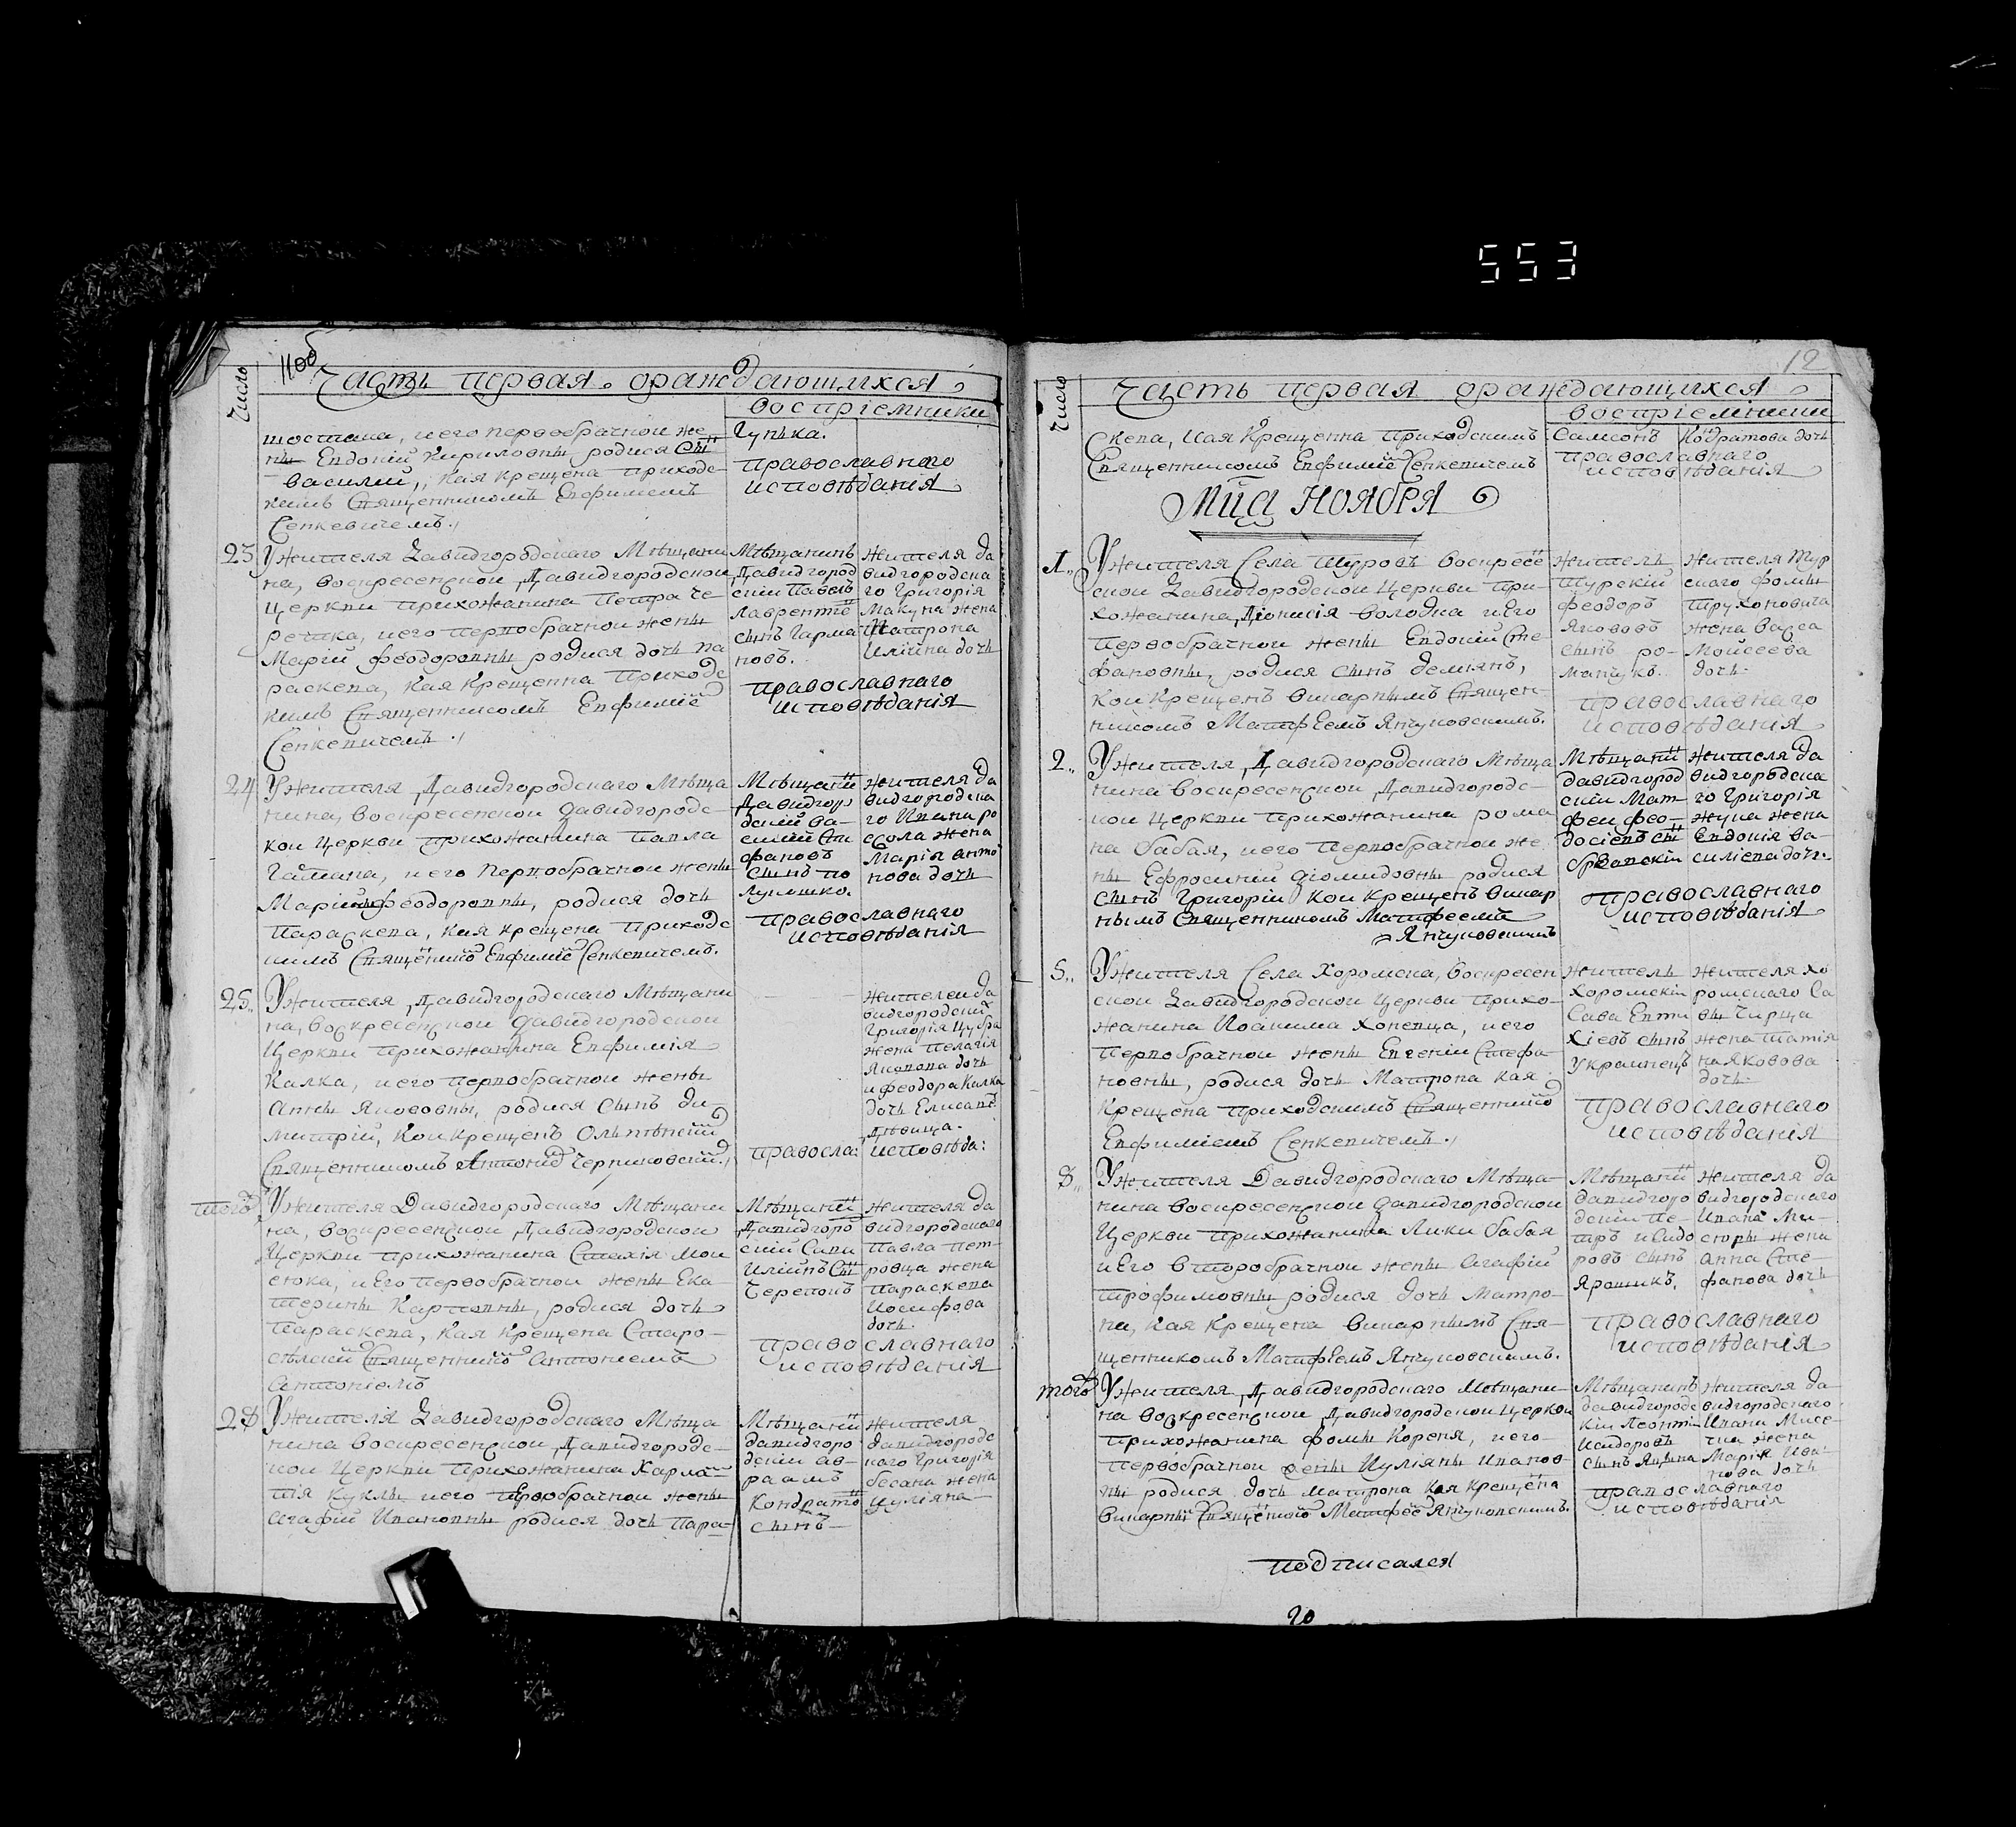 553
11об
Число
Часть первая о раждающихся
воспріемники
шостака, и его первобрачной же-
ны Евдокіи Кириловны родися сы
василий, кая крещена приходс-
кимъ Священникомъ Евфиміемъ
Сенкевичемъ.
Гунька.
православнаго
исповѣданія
23
У жителя Давидгородскаго Мѣщани
на, воскресенской Давидгородской
церкви прихожанина Петра Че
речика, и его первобрачной жены
Маріи Феодоровны родися дочь Па
раскева, кая крещенна приходс
кимъ Священникомъ Евфиміе
Сенкевичемъ.
Мѣщанинъ
Давидгород
скій Павелъ
Лавренті
сынъ Гарма
новъ.
жителя да
видгородска
го Григорія
Макуха жена
Матрона
Иліина дочь
православнаго
исповѣданія
24
У жителя Давидгородскаго Мѣща
нина, воскресенской Давидгородс-
кой церкви прихожанина Павла
Гатмана, и его первобрачной жены
Маріи Феодоровны, родися дочь
Параскева, кая крещена приходс
кимъ Священнико Евфиміе Сенкевичемъ.
Мѣщани
Давидгоро
дскій Ва-
силій Сти
фановъ
сынъ по
Лупишко.
жителя да
видгородска
го Ивана ро
сола жена
Марія Анто
нова дочь
православнаго
исповѣданія
25
У жителя Давидгородскаго Мѣщани
на, воскресенской Давидгородской
Церкви прихожанина Евфимія
Калка, и его первобрачной жены
Анны Якововны, родися сынъ Ди-
митрій, кой крещенъ
Священникомъ Антоніе Черниковскі
жителей да
видгородски
Григорія Цубра
жена Пелагія
Яковова дочь
и феодора Калка
дочь Елисаве
дѣвица.
правосла: исповѣда:
того
У жителя Давидгородскаго Мѣщани
на, воскресенской Давидгородской
Церкви прихожанина Стахія Мои
сюка, и Его первобрачной жены Ека
терины Карповны, родися дочь
Параскева, кая крещена Старо-
сѣлскі Священнико Антоніемъ
Антоніемъ
Мѣщани
Давидгоро
скій Сави
Иліинъ Сы
Черепокъ
жителя да
видгородскаго
Павла Пет
ровца жена
Параскева
Иосифова
дочь.
православнаго
исповѣданія
28
У жителя Давидгородскаго Мѣща
нина воскресенской Давидгородс-
кой Церкви прихожанина Харла-
пія Куклы и его первобрачной жены
Агафіи Ивановны родися дочь Пара-
Мѣщани
давидгоро
дскій ав-
раамъ
Кондрато
сынъ
жителя
давидгородс
каго Григорія
бесана жена
Иуліяна
12
Число
Часть первая о раждающихся
воспріемники
скева, кая крещенна Приходскимъ
Священникомъ Евфиміе Сенкевичемъ
Самсонъ
Кодратова дочь
православнаго
исповѣданія
Мца Ноября
1
У жителя Села Туровъ воскресе
ской Давидгородской Церкви при-
хожанина, Діонисія володка и его
первобрачной жены Евдокіи Сте-
фановны, родися сынъ демьянъ,
кой крещенъ викарнымъ Священ-
никомъ Матфеемъ Янчуковскимъ.
Житель
Турскій
феодоръ
Якововъ
сынъ ро-
манчукъ.
жителя Тур
скаго фомы
Трухоновича
жена Васса
Моисеева
дочь.
православнаго
исповѣданія
2
У жителя Давидгородскаго Мѣща
нина воскресенской Давидгородс-
кой церкви прихожанина рома
на бабая, и его первобрачной же
ны Ефросиніи Діомидовны родися
сынъ Григорій кой крещенъ викар
нымъ Священникомъ Матфеемъ
Янчуковскимъ
Мѣщани
давидгород
скій Мат-
фей фео-
досіевъ сы
жителя да
видгородска
го Григорія
жука жена
Евдокія ва-
силіева дочь.
православнаго
исповѣданія
5
У жителя Села Хоромска, воскресен
ской Давидгородской Церкви прихо-
жанина Иоакима Хопевца, и его
первобрачной жены Евгеніи Стефа
новны, родися дочь Матрона кая
крещена приходскимъ Священнико
Евфиміемъ Сенкевичемъ.
Житель
Хоромскій
Сава Евти
хіевъ сынъ
Украинецъ
жителя хо
ромскаго Са
вы Чирца
жена Татія
на Яковова
дочь.
православнаго
исповѣданія
8
У жителя Давидгородскаго Мѣща-
нина воскресенской Давидгородской
Церкви прихожанина Луки бабая
и Его второбрачной жены Агафіи
Трофимовны родися дочь Матро-
на, кая крещена викарнымъ Свя-
щенникомъ Матфеемъ Янчуковскимъ.
Мѣщани
давидгоро
дскій Пе-
тръ Исидо
ровъ сынъ
Ярошикъ.
жителя да
видгородскаго
Ивана Ми-
сюры жена
анна Сте-
фанова дочь
православнаго
исповѣданія
того
У жителя Давидгородскаго Мѣщани-
на воскресенской Давидгородской церкви
прихожанина фомы Кореня, и его
первобрачной жены Иуліяны Иванов
ны родися дочь матрона кая крещена
викарны Священнико Матфее Янчуковскимъ.
Мѣщанинъ
давидгородс
кій Леонті
Исидоровъ
сынъ
жителя да
видгородскаго
Ивана Мисе-
чка жена
Марія Ива
нова дочь
православнаго
исповѣданія
подписался
20